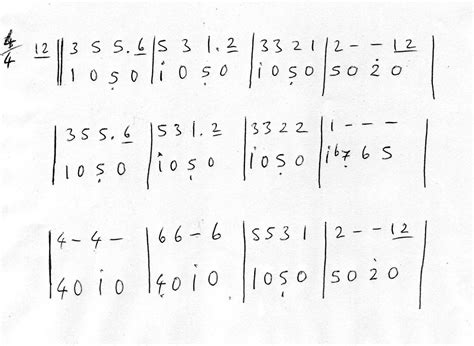 4/4 1̲2̲ || 3 5 5 . 6̲ | 5 3 1 . 2̲ | 3 3 2 1 | 2 - - 1̲2̲ |
1 0 5̣ 0 | 1̇ 0 5̣ 0 | 1̇ 0 5̣ 0 | 5 0 2̇ 0 |
| 3 5 5 . 6̲ | 5 3 1 . 2̲ | 3 3 2 2 | 1 - - - |
1 0 5̣ 0 | 1̇ 0 5̣ 0 | 1̇ 0 5̣ 0 | 1̇ b7 6 5 |
| 4 - 4 - | 6 6 - 6 | 5 5 3 1 | 2 - - 1̲2̲ |
4 0 1̇ 0 | 4 0 1̇ 0 | 1 0 5̣ 0 | 5 0 2̇ 0 |